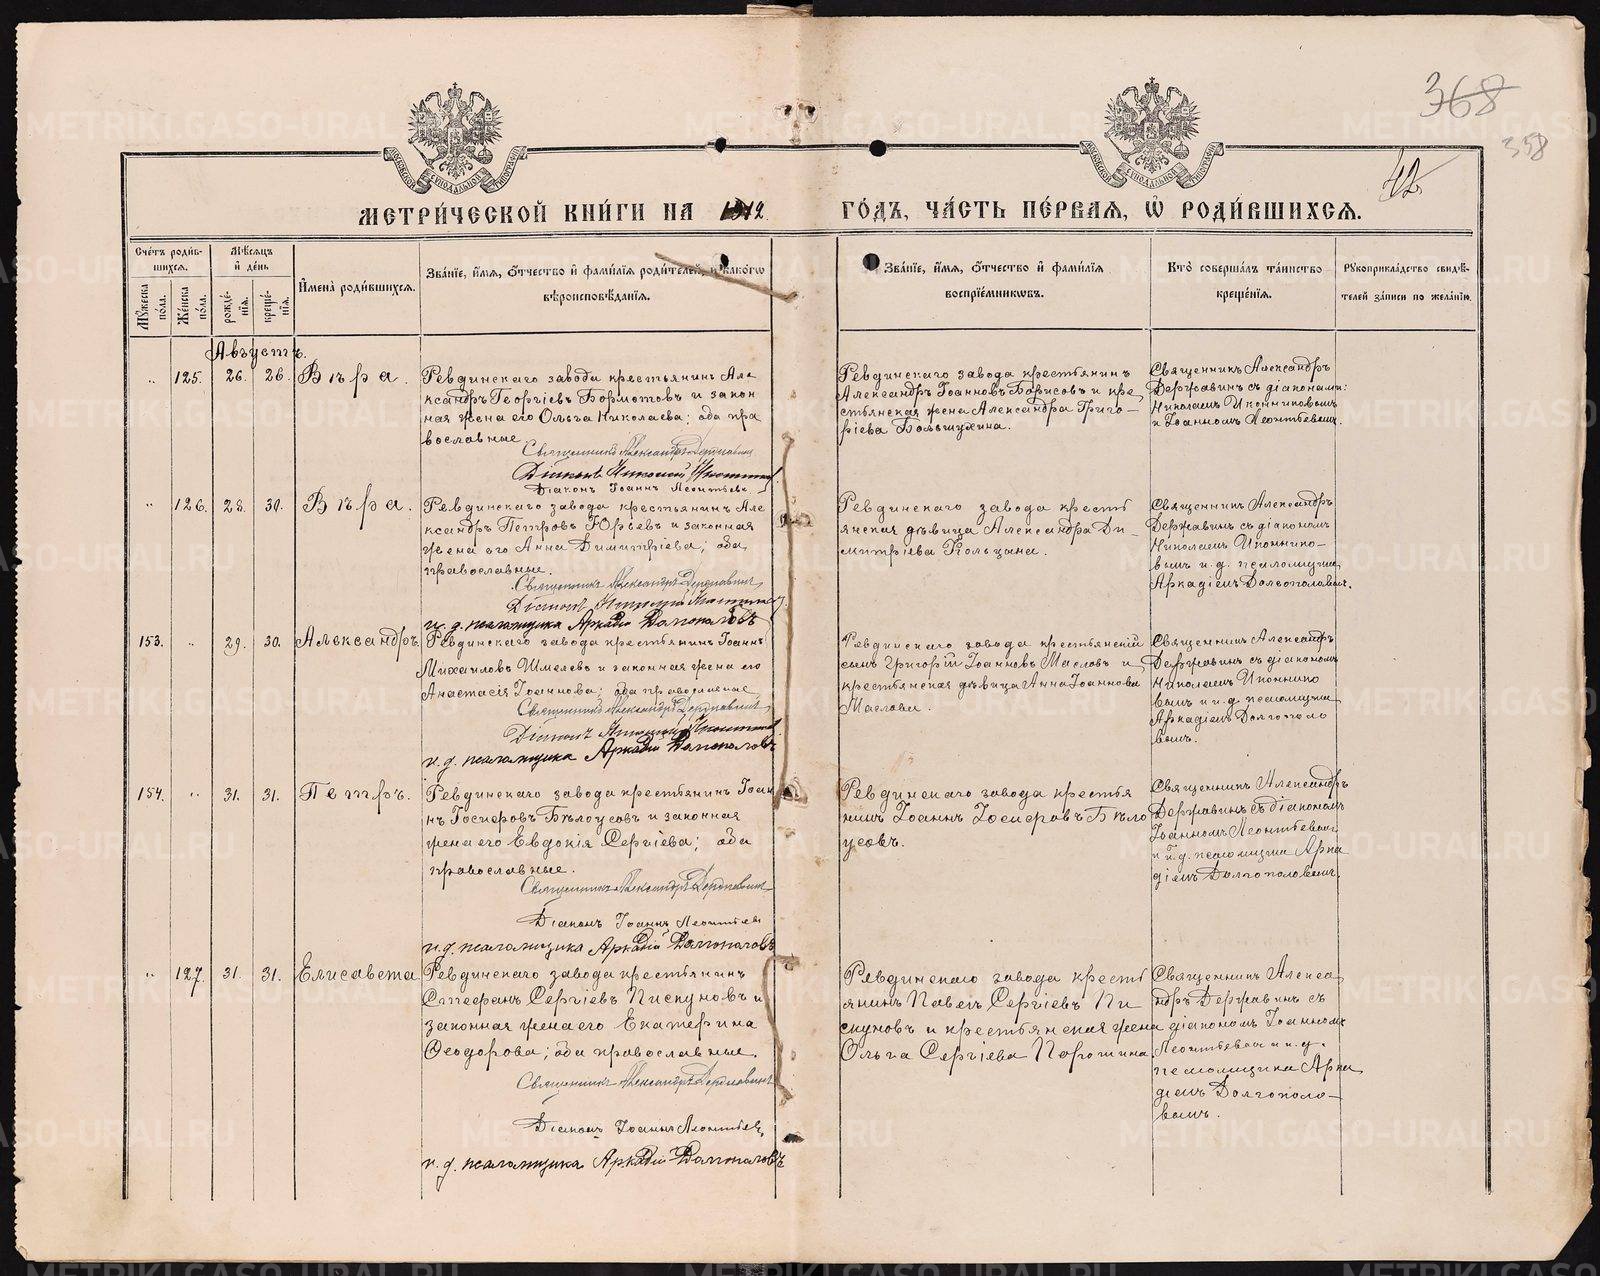 368
358
42
МОСКОВСКОЙ СѴНОДАЛЬНОЙ ТИПОГРАФІИ
МОСКОВСКОЙ СѴНОДАЛЬНОЙ ТИПОГРАФІИ
МЕТРИ́ЧЕСКОЙ КНИ́ГИ НА 1912 ГО́ДЪ, ЧА́СТЬ ПЕ́РВАЯ, Ѡ РОДИ́ВШИХСЯ.
Сче́тъ роди́в-
шихся.
Му́жеска по́ла.
Же́нска по́ла.
Мѣ́сяцъ
и де́нь
рожде́-
нія.
креще́-
нія.
Имена̀ роди́вшихся.
Зва́ніе, и́мя, о́тчество и фами́лія роди́телей, и како́гѡ
вѣроисповѣ́данія.
Зва́ніе, и́мя, о́тчество и фами́лія
воспріе́мниковъ.
Кто̀ соверша́лъ та́инство
креще́нія.
Рукоприкла́дство свидѣ́-
телей за́писи по жела́нію.
Августъ.
„ 125. 26. 26. Вѣра.
Ревдинскаго завода крестьянинъ Але
ксандръ Георгіевъ Бормотовъ и закон
ная жена его Ольга Николаева; оба пра
вославные.
Священникъ Александръ Державинъ
Діаконъ Николай Иконниковъ
Діаконъ Іоаннъ Леонтьевъ
Ревдинскаго завода крестьянинъ
Александръ Іоанновъ Борисовъ и кре
стьянская жена Александра Григо-
ріева Большухина.
Священникъ Александръ
Державинъ съ діаконами:
Николаемъ Иконниковымъ
и Іоанномъ Леонтьевымъ.
„ 126. 28. 30. Вѣра.
Ревдинскаго завода крестьянинъ Але
ксандръ Петровъ Юрьевъ и законная
жена его Анна Димитріева; оба
православные.
Священникъ Александръ Державинъ
Діаконъ Николай Иконниковъ
и. д. псаломщика Аркадій Долгополовъ
Ревдинскаго завода кресть
янская дѣвица Александра Ди-
митріева Кольцина.
Священникъ Александръ
Державинъ съ діакономъ
Николаемъ Иконнико-
вымъ и. д. псаломщика
Аркадіемъ Долгополовымъ.
153. „ 29. 30. Александръ.
Ревдинскаго завода крестьянинъ Іоаннъ
Михаиловъ Шмелевъ и законная жена его
Анастасія Іоаннова; оба православные
Священникъ Александръ Державинъ
Діаконъ Николай Иконниковъ
и. д. псаломщика Аркадій Долгополовъ
Ревдинскаго завода крестьянскій
сынъ Григорій Іоанновъ Масловъ и
крестьянская дѣвица Анна Іоаннова
Маслова.
Священникъ Александръ
Державинъ съ діакономъ
Николаемъ Иконнико
вымъ и и. д. псаломщика
Аркадіемъ Долгополо
вымъ.
154. „ 31. 31. Петръ.
Ревдинскаго завода крестьянинъ Іоан
нъ Іосифовъ Бѣлоусовъ и законная
жена его Евдокія Сергіева; оба
православные.
Священникъ Александръ Державинъ
Діаконъ Іоаннъ Леонтьевъ
и. д. псаломщика Аркадій Долгополовъ
Ревдинскаго завода крестья
нинъ Іоаннъ Іосифовъ Бѣло
усовъ.
Священникъ Александръ
Державинъ съ діакономъ
Іоанномъ Леонтьевымъ
и и. д. псаломщика Арка
діемъ Долгополовымъ.
„ 127. 31. 31. Елисавета
Ревдинскаго завода крестьянинъ
Стефанъ Сергіевъ Пискуновъ и
законная жена его Екатерина
Ѳеодорова; оба православные.
Священникъ Александръ Державинъ
Діаконъ Іоаннъ Леонтьевъ
и. д. псаломщика Аркадій Долгополовъ
Ревдинскаго завода кресть
янинъ Павелъ Сергіевъ Пи
скуновъ и крестьянская жена
Ольга Сергіева Порошина.
Священникъ Алекса
ндръ Державинъ съ
діакономъ Іоанномъ
Леонтьевымъ и и. д.
псаломщика Арка
діемъ Долгополо-
вымъ.
METRIKI.GASO-URAL.RU